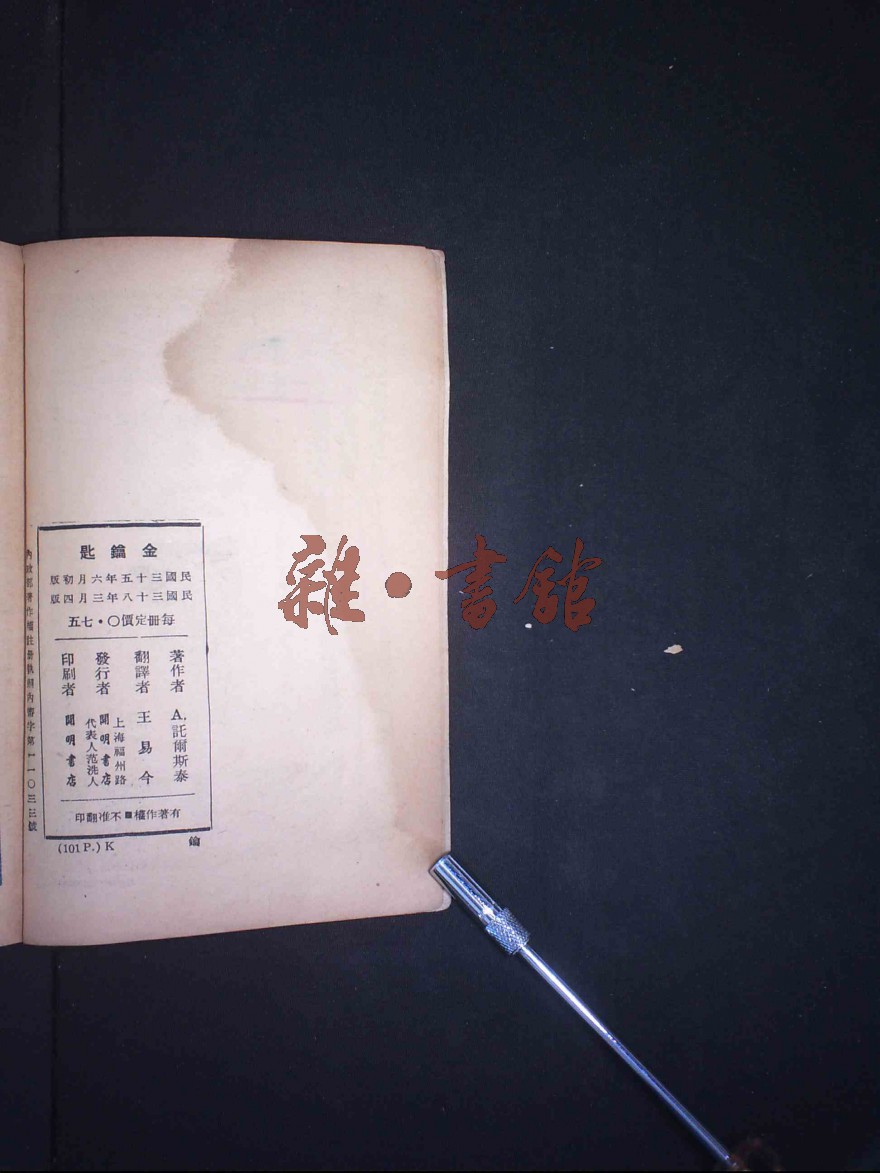 金鑰匙
民國三十五年六月初版
民國三十八年三月四版
每冊定價〇·七五
著作者 A.託爾斯泰
翻譯者 王易今
發行者 上海福州路
開明書店
代表人范洗人
印刷者 開明書店
有著作權■不准翻印
(101 P.) K
鑰
內政部著作權註冊執照內警字第一一〇三三號
雜·書館